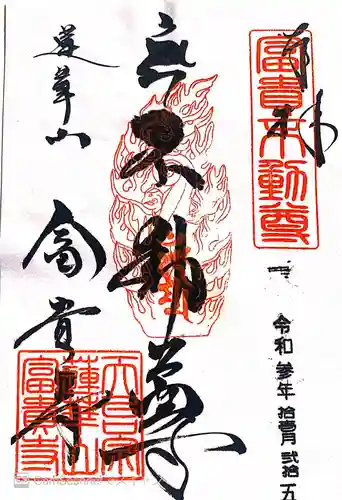 奉拝
富貴不動尊
令和 参年 拾壹月 弐拾五
不動尊
蓮華山
富貴寺
天台宗
蓮華山
富貴寺